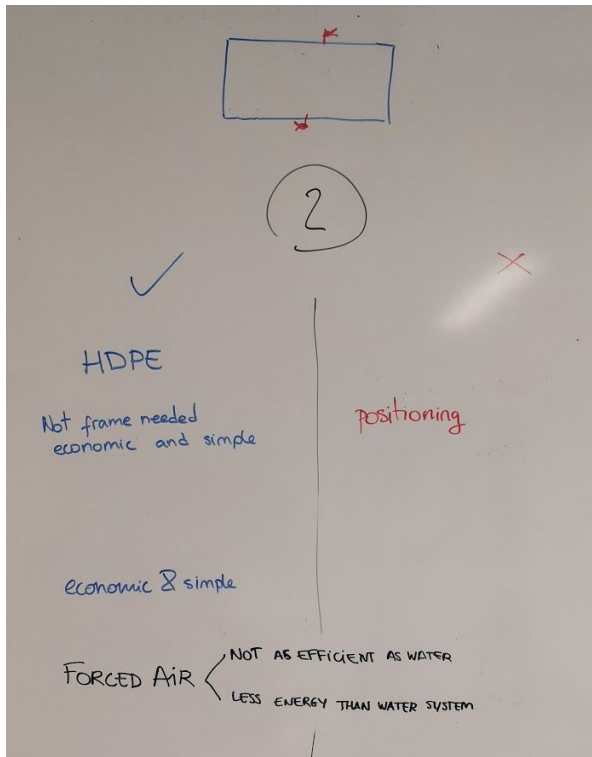 2
HDPE
Not frame needed
economic and simple
positioning
economic & simple
FORCED AIR
NOT AS EFFICIENT AS WATER
LESS ENERGY THAN WATER SYSTEM